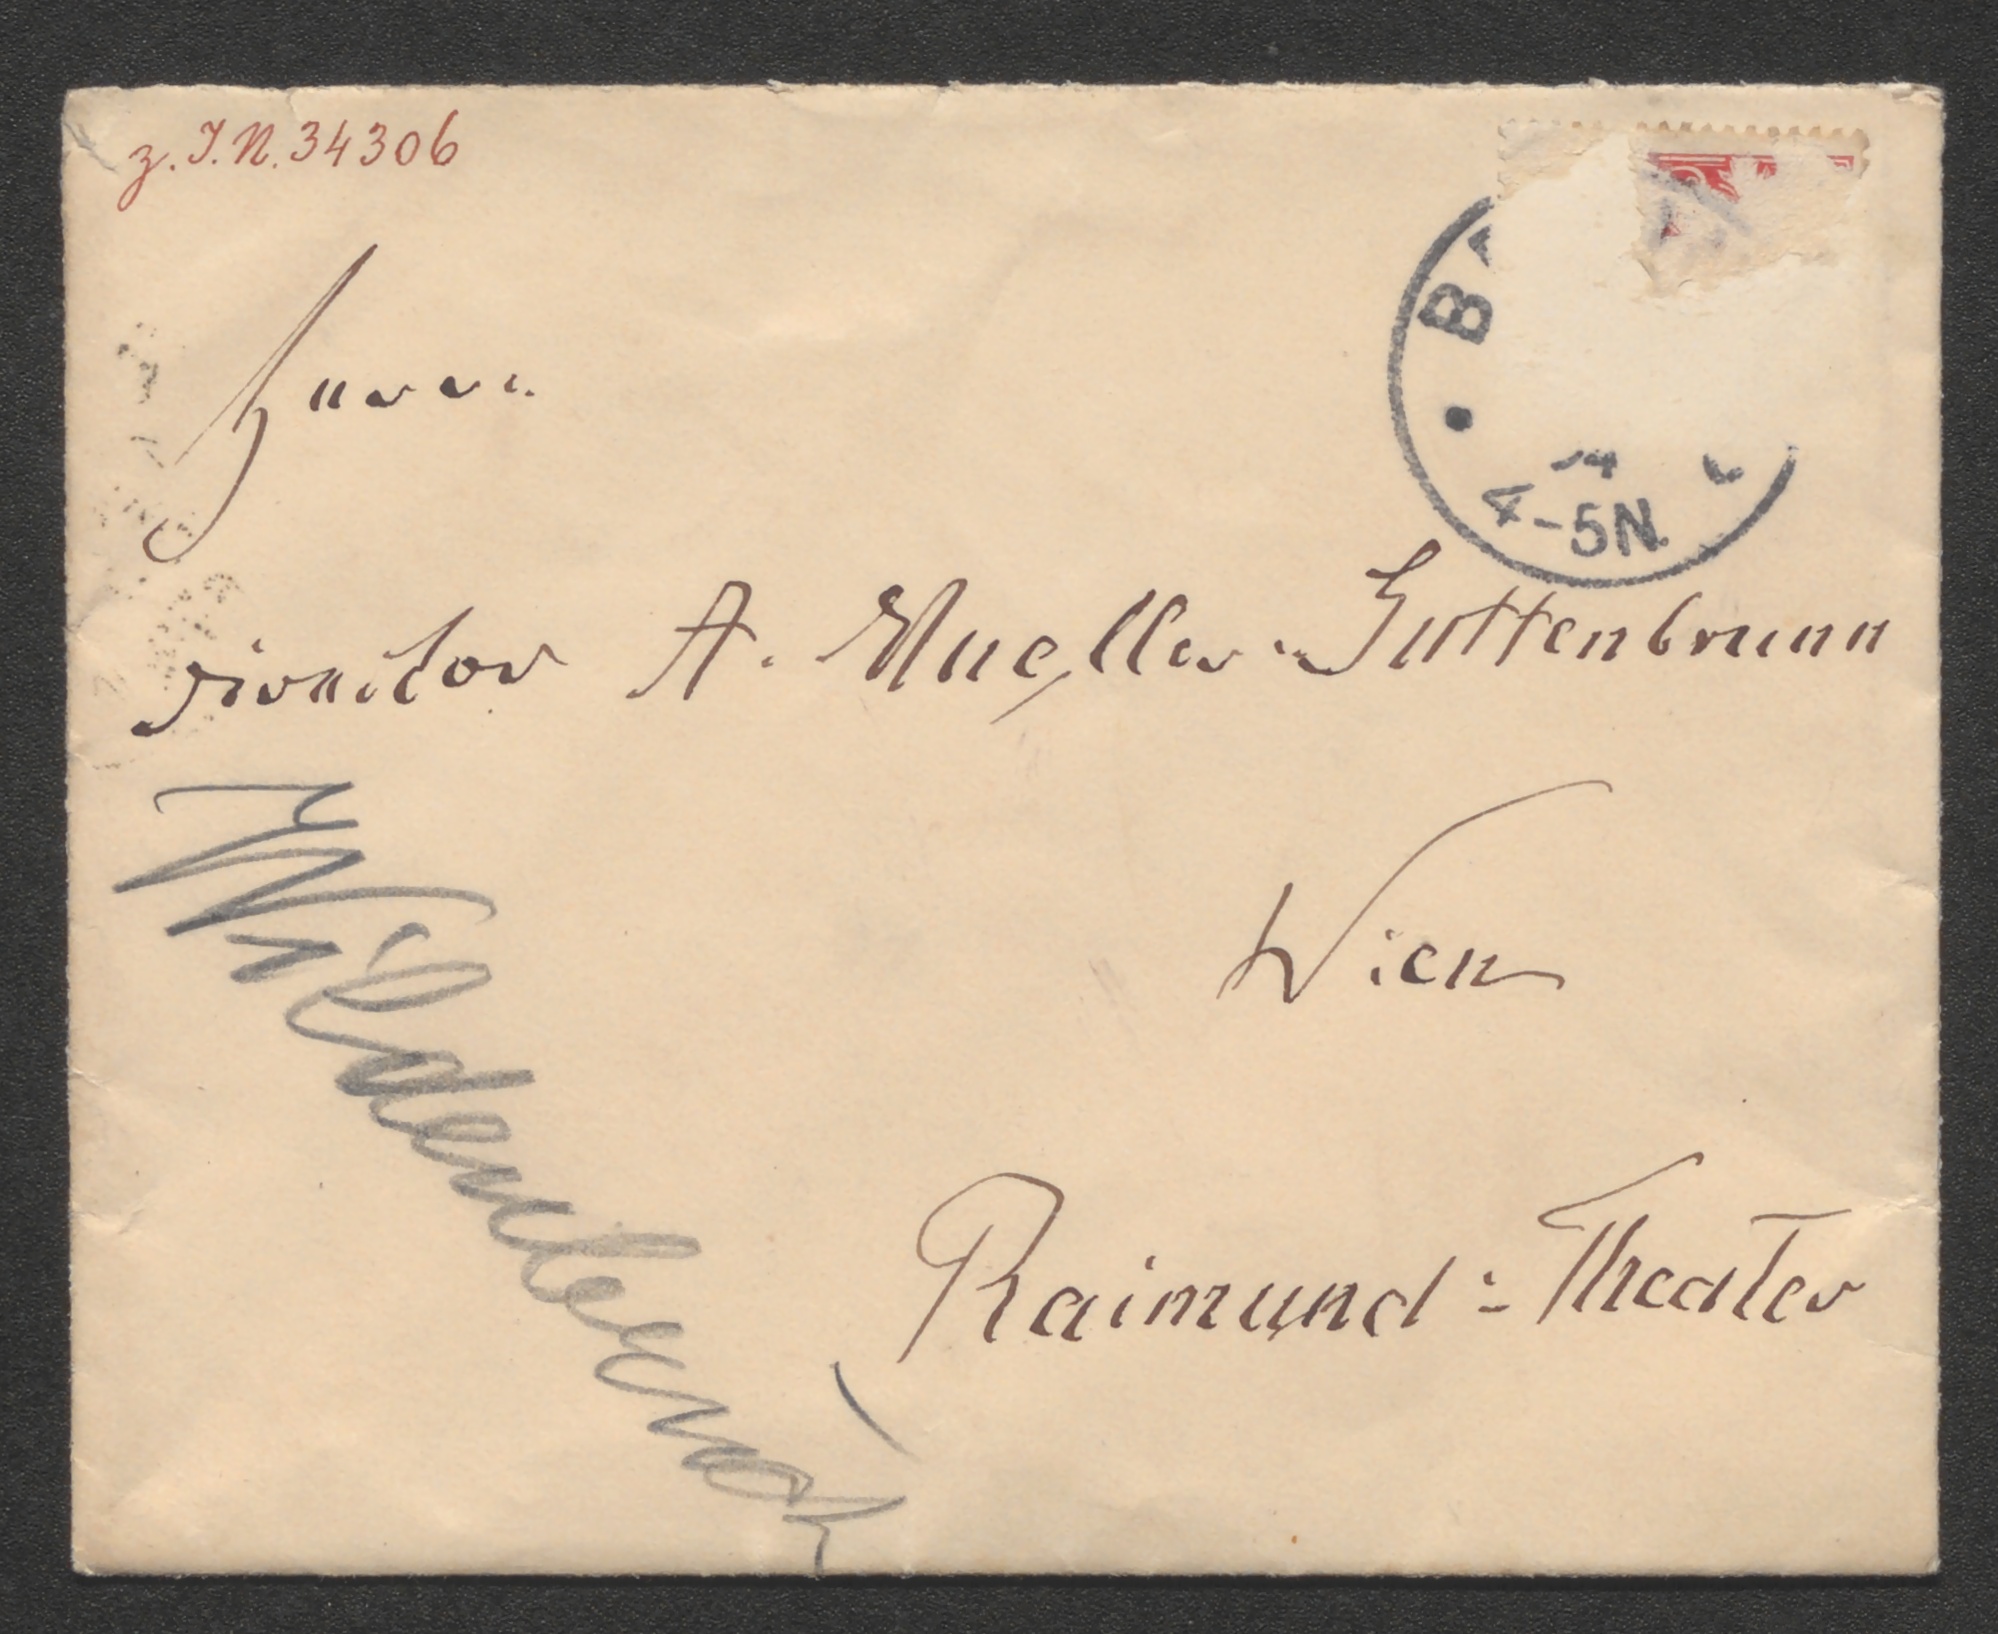 z. I. N. 34306
4-5N.
Herrn
Director A. Mueller-Guttenbrunn
Wien
Raimund-Theater
Wildenbruch